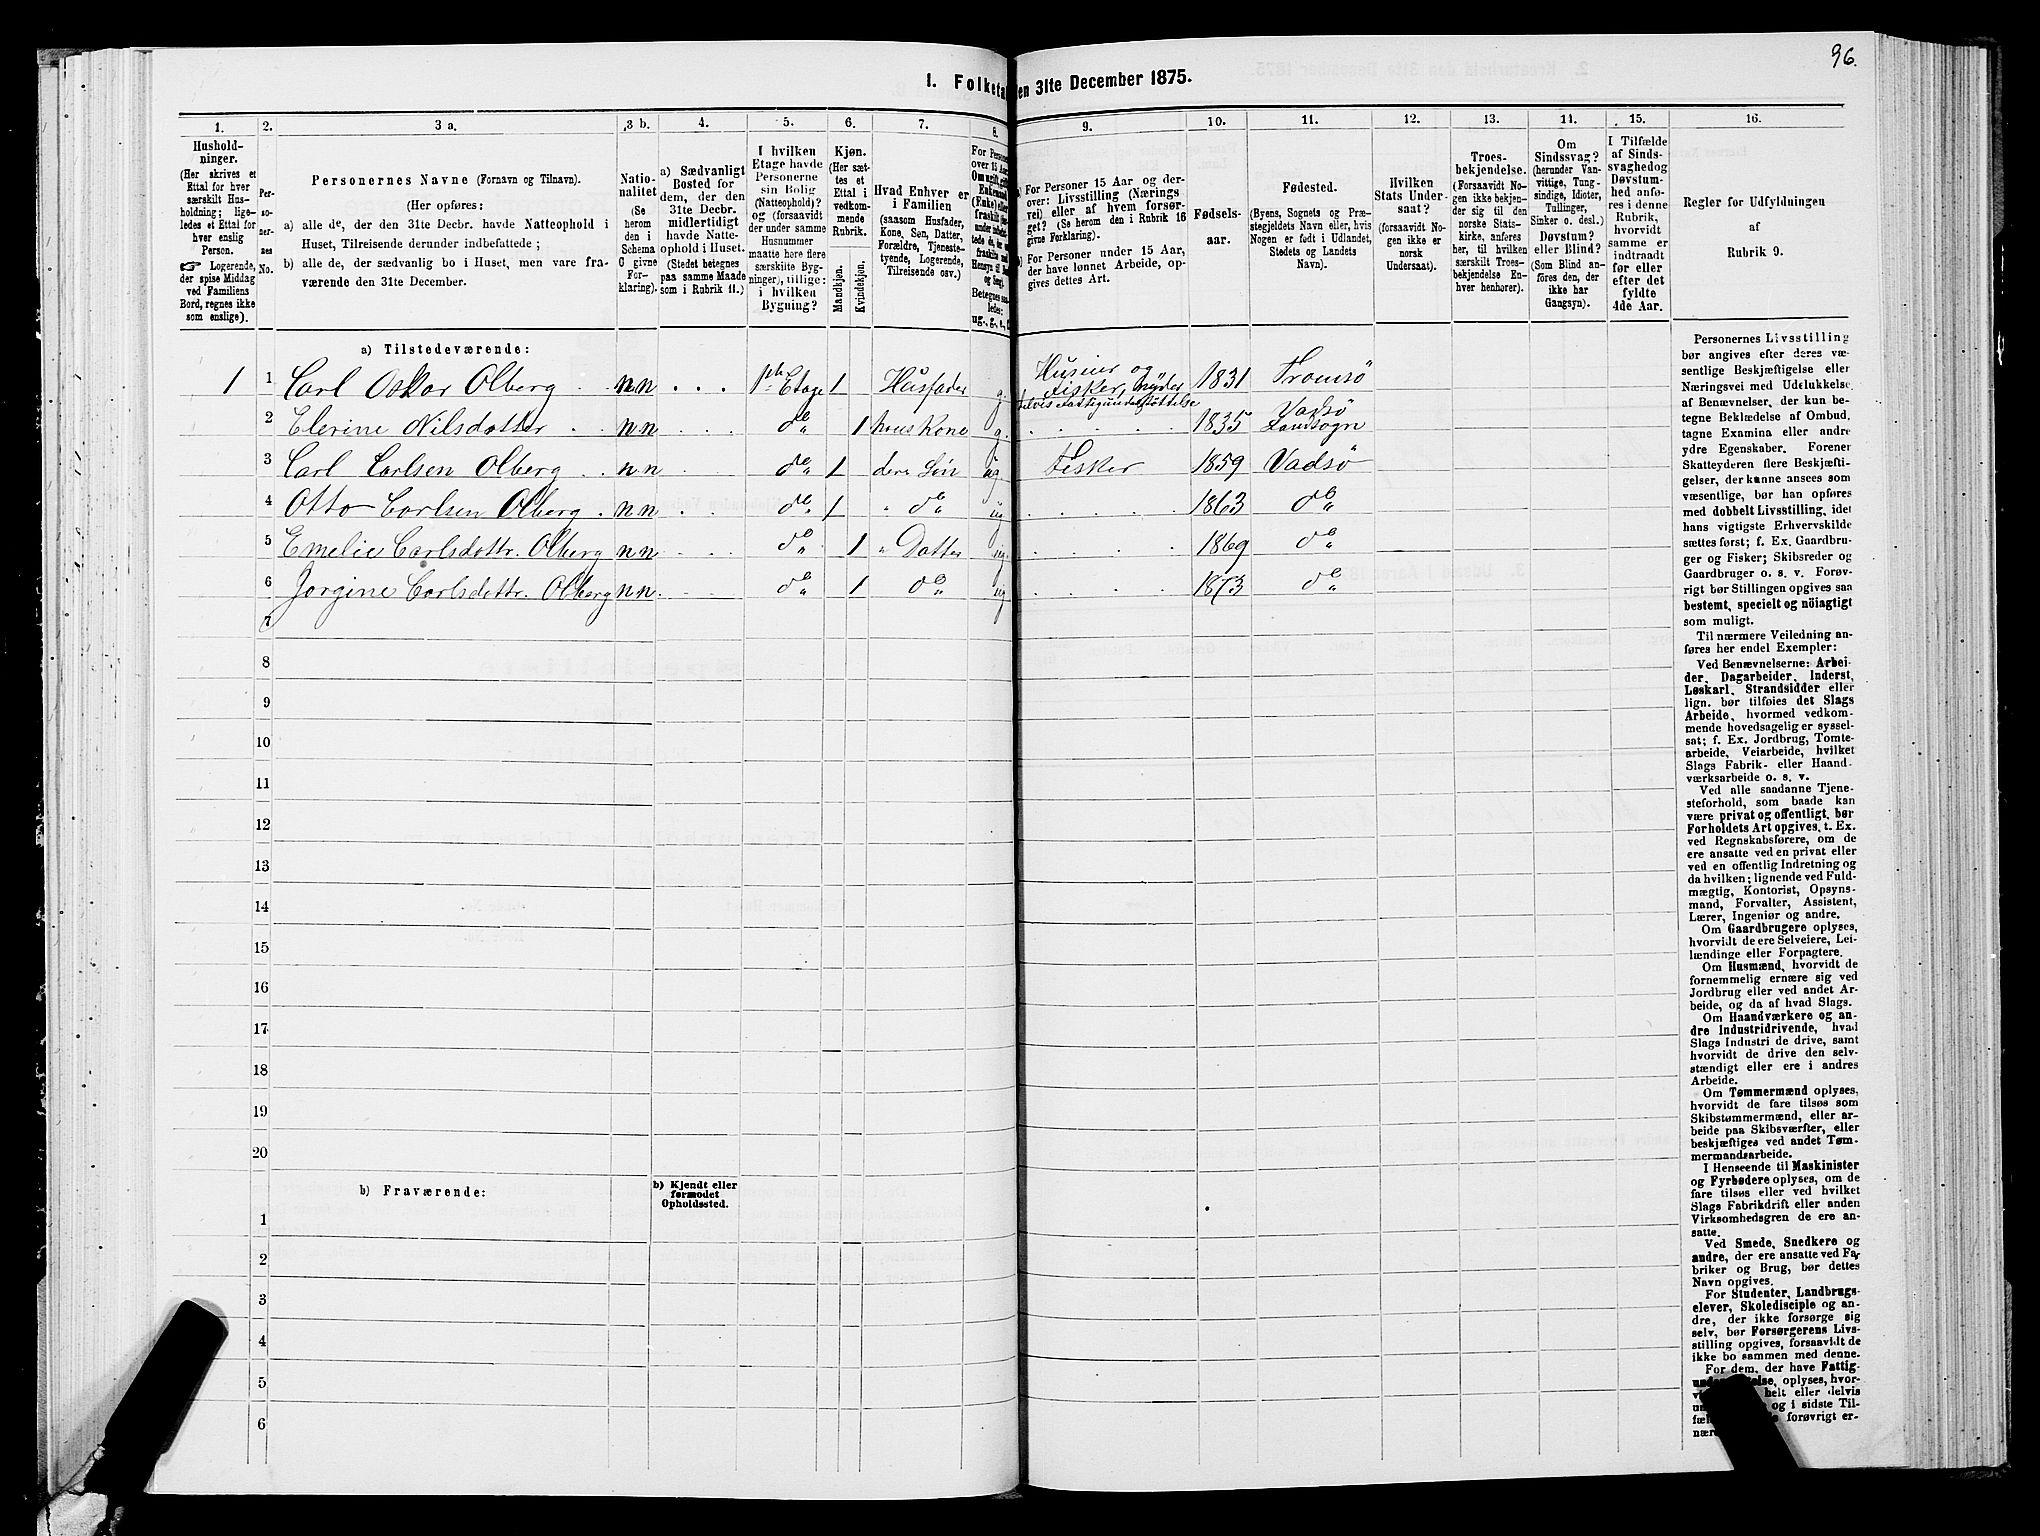 96.
1. Folketal
den 31te December 1875.
1. 2. 3 a. 3 b. 4. 5. 6. 7. 8. 9. 10. 11. 12. 13. 14. 15. 16.
Husholdninger.
(Her skrives et
Ettal for hver
særskilt Husholdning;
ligeledes et Ettal for
hver enslig
Person.
☞ Logerende,
der spise Middag
ved Familiens
Bord, regnes ikke
som enslige).
Personernes No.
Personernes Navne (Fornavn og Tilnavn).
(Her opføres:
a) alle de, der den 31te Decbr. havde Natteophold i
Huset, Tilreisende derunder indbefattede;
b) alle de, der sædvanlig bo i Huset, men vare fraværende den 31te December.
Nationalitet
(Se
herom
den i
Schema
C givne
Forklaring).
a) Sædvanligt
Bosted for
dem, der den
31te Decbr.
midlertidigt
havde Natteophold i Huset.
(Stedet betegnes
paa samme Maade
som i Rubrik 11.)
I hvilken
Etage havde
Personerne
sin Bolig
(Natteophold)?
og (forsaavidt
der under samme
Husnummer
maatte høre flere
særskilte Bygninger), tillige:
i hvilken
Bygning?
Kjøn.
(Her sættes et
Ettal i
vedkommende
Rubrik.
Mandkjøn.
Kvindekjøn.
Hvad Enhver er
i Familien
(saasom Husfader,
Kone, Søn, Datter,
Forældre, Tjenestetyende, Logerende,
Tilreisende osv.)
a) For Personer 15 Aar og derover: Livsstilling (Næringsvei) eller af hvem forsørget? (Se herom den i Rubrik 16
givne Forklaring).
b) For Personer under 15 Aar,
der have lønnet Arbeide, opgives dettes Art.
Fødselsaar.
Fødested.
(Byens, Sognets og Præstegjeldets Navn eller, hvis
Nogen er født i Udlandet,
Stedets og Landets
Navn).
Hvilken
Stats Undersaat?
(forsaavidt Nogen ikke er
norsk
Undersaat).
Troesbekjendelse.
(Forsaavidt Nogen ikke bekjender sig til den
norske Statskirke, anføres
her, til hvilken
særskilt Troesbekjendelse Enhver henhører).
Om
Sindssvag?
(herunder Vanvittige, Tungsindige, Idioter,
Tullinger,
Sinker o. desl.)
Døvstum?
eller Blind?
(Som Blind anføres den, der
ikke har
Gangsyn).
I Tilfælde
af Sindssvaghed og
Døvstumhed anføres i denne
Rubrik,
hvorvidt
samme er
indtraadt
før eller
efter det
fyldte
4de Aar.
Regler for Udfyldningen
af
Rubrik 9.
a) Tilstedeværende:
1 1 Carl Oskar Olberg n n 1ste Etage 1 Husfader g. Huseier og Fisker, nyder delvis Fattigunderstøttelse 1831 Tromsø
2 Elerine Nilsdatter n n do 1 hans Kone g. 1835 Vadsø Landsogn
3 Carl Carlsen Olberg n n do 1 deres Søn ug Fisker 1859 Vadsø
4 Otto Carlsen Olberg n n do 1 " do ug 1863 do
5 Emelie Carlsdattr. Olberg n n do 1 " Datter ug. 1869 do
6 Jorgine Carlsdattr. Olberg n n do 1 do ug 1873 do
7
8
9
10
11
12
13
14
15
16
17
18
19
20
b) Fraværende:
b) Kjendt eller
formodet
Opholdssted.
1
2
3
4
5
6
Personernes Livsstilling
bør angives efter deres væsentlige Beskjæftigelse eller
Næringsvei med Udelukkelse
af Benævnelser, der kun betegne Beklædelse af Ombud,
tagne Examina eller andre
ydre Egenskaber. Forener
Skatteyderen flere Beskjæftigelser, der kunne ansees som
væsentlige, bør han opføres
med dobbelt Livsstilling, idet
hans vigtigste Erhvervskilde
sættes først; f. Ex. Gaardbruger og Fisker; Skibsreder og
Gaardbruger o. s. v. Forøvrigt bør Stillingen opgives saa
bestemt, specielt og nöiagtigt
som muligt.
Til nærmere Veiledning anføres her endel Exempler:
Ved Benævnelserne: Arbeider, Dagarbeider, Inderst,
Løskarl, Strandsidder eller
lign. bør tilføies det Slags
Arbeide, hvormed vedkommende hovedsagelig er sysselsat; f. Ex. Jordbrug, Tomtearbeide, Veiarbeide, hvilket
Slags Fabrik- eller Haandværksarbeide o. s. v.
Ved alle saadanne Tjenesteforhold, som baade kan
være privat og offentligt, bør
Forholdets Art opgives, t. Ex.
ved Regnskabsførere, om de
ere ansatte ved en privat eller
ved en offentlig Indretning og
da hvilken; lignende ved Fuldmægtig, Kontorist, Opsynsmand, Forvalter, Assistent,
Lærer, Ingeniør og andre.
Om Gaardbrugere oplyses,
hvorvidt de ere Selveiere, Leilændinge eller Forpagtere.
Om Husmænd, hvorvidt de
fornemmelig ernære sig ved
Jordbrug eller ved andet Arbeide, og da af hvad Slags.
Om Haandværkere og andre Industridrivende, hvad
Slags Industri de drive, samt
hvorvidt de drive den selvstændigt eller ere i andres
Arbeide.
Om Tømmermænd oplyses,
hvorvidt de fare tilsøs som
Skibstømmermænd, eller arbeide paa Skibsværfter, eller
beskjæftiges ved andet Tømmermandsarbeide.
I Henseende til Maskinister
og Fyrbødere oplyses, om de
fare tilsøs eller ved hvilket
Slags Fabrikdrift eller anden
Virksomhedsgren de ere ansatte.
Ved Smede, Snedkere og
andre, der ere ansatte ved Fabriker og Brug, bør dettes
Navn opgives.
For Studenter, Landbrugselever, Skoledisciple og andre, der ikke forsørge sig
selv, bør Forsørgerens Livsstilling opgives, forsaavidt de
ikke bo sammen med denne.
For dem, der have Fattig
oplyses, hvor
helt eller delvis
og i sidste Til
forøvrigt er